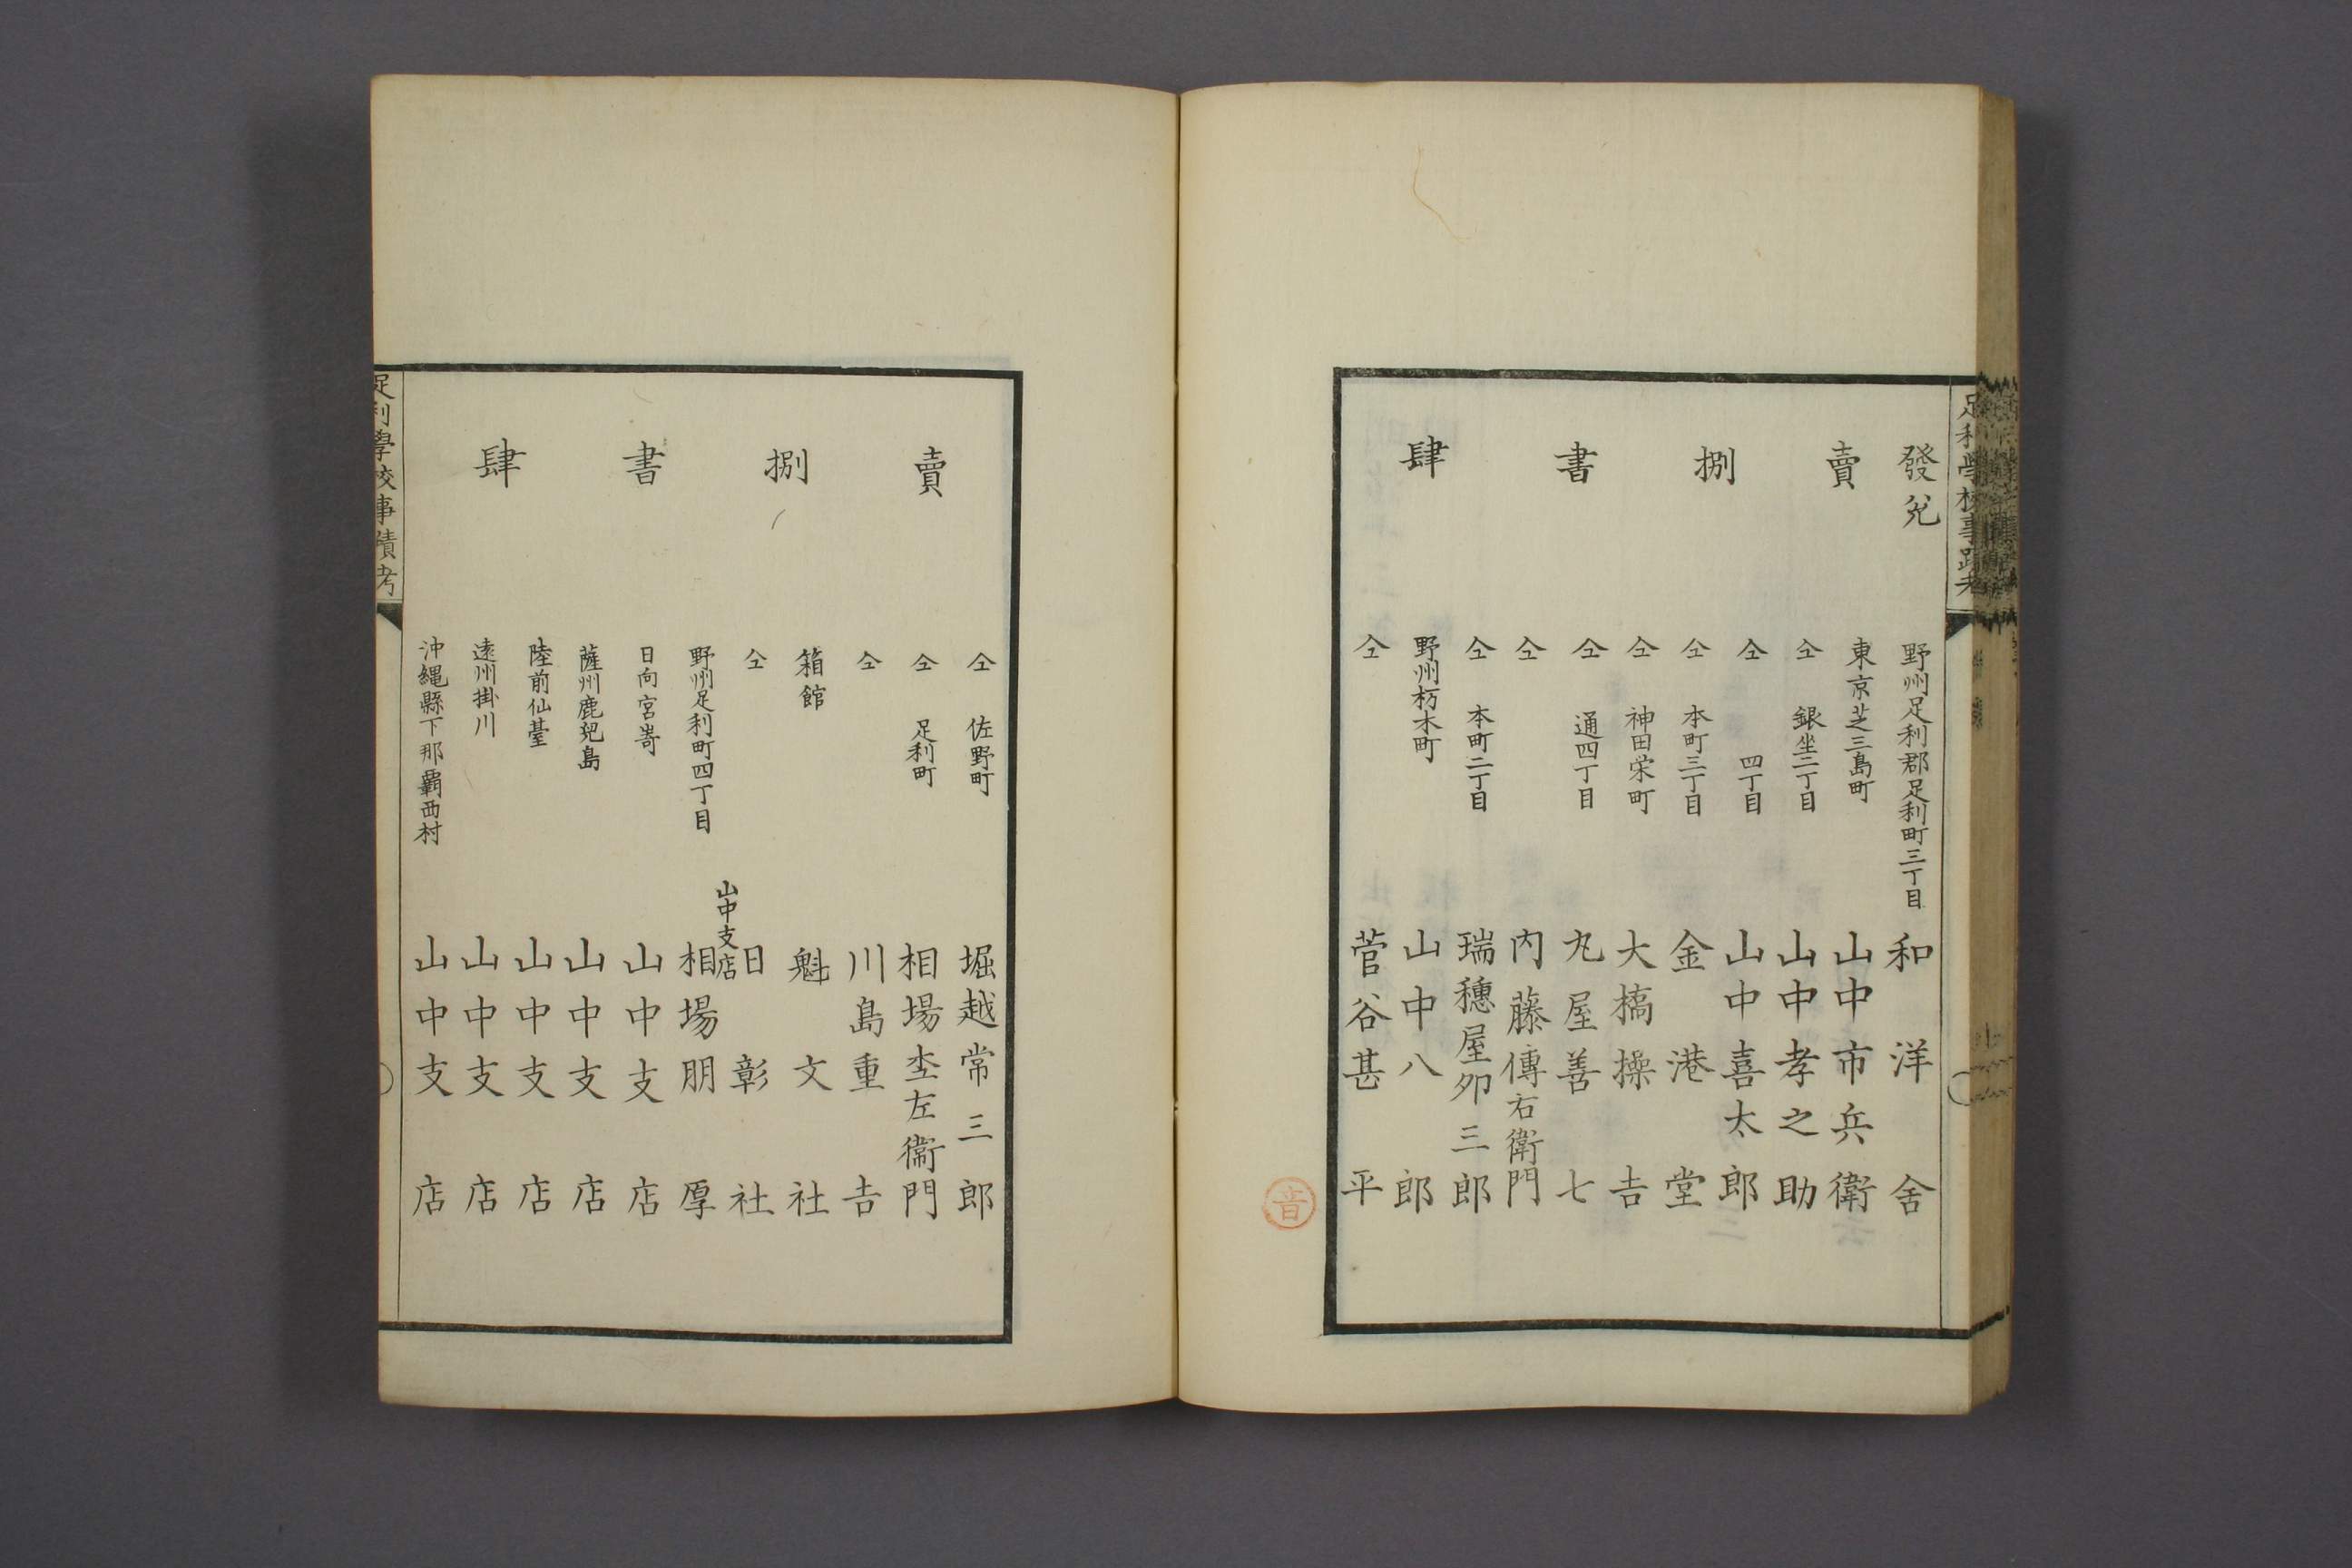 足利學校事蹟考
發兌
賣捌書肆
野州足利郡足利町三丁目 和洋舍
東京芝三島町 山中市兵衛
仝 銀坐二丁目 山中孝之助
仝 四丁目 山中喜太郎
仝 本町三丁目 金港堂
仝 神田栄町 大橋操吉
仝 通四丁目 丸屋善七
仝 内藤傳右衛門
仝 本町二丁目 瑞穗屋夘三郎
野州栃木町 山中八郎
仝 菅谷甚平
音
賣捌書肆
仝 佐野町 堀越常三郎
仝 足利町 相場坔左衞門
仝 川島重吉
箱館 魁文社
仝 山中支店 日彰社
野州足利町四丁目 相場朋厚
日向宮嵜 山中支店
薩州鹿兒島 山中支店
陸前仙臺 山中支店
遠州掛川 山中支店
沖縄縣下那覇西村 山中支店
足利學校事蹟考